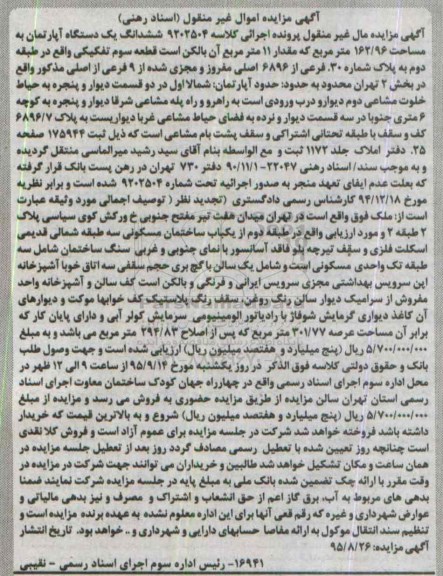 آگهی مزایده اموال غیر منقول (اسناد رهنی)
آگهی مزایده مال غیر منقول پرونده اجرائی کلاسه ۹۲۰۲۵۰۴ ششدانگ یک دستگاه آپارتمان به
مساحت ۱۶۲/۹۶ متر مربع که مقدار ۱۱ متر مربع آن بالکن است قطعه سوم تفکیکی واقع در طبقه
دوم به پلاک شماره ۳۰. فرعی از ۶۸۹۶ اصلی مفروز و مجزی شده از ۹ فرعی از اصلی مذکور واقع
در بخش ۲ تهران محدود به حدود: حدود آپارتمان: شمالا اول در دو قسمت دیوار و پنجره به حیاط
خلوت مشاعی دوم دیوار و درب ورودی است به راهرو و راه پله مشاعی شرقا دیوار و پنجره به کوچه
۶ متری جنوبا در سه قسمت دیوار و نرده به فضای حیاط مشاعی غربا دیواریست به پلاک ۶۸۹۶/۷
کف و سقف با طبقه تحتانی اشتراکی و سقف پشت بام مشاعی است که ذیل ثبت ۱۷۵۹۴۴ صفحه
۲۵. دفتر املاک جلد ۱۱۷۲ ثبت و مع الواسطه بنام آقای سید رشید میرالماسی منتقل گردیده
و به موجب سند/ اسناد رهنی ۲۲۰۴۷-۹۰/۱۱/۱ دفتر ۷۳۰ تهران در رهن پست بانک قرار گرفته
که بعلت عدم ایفای تعهد منجر به صدور اجرائیه تحت شماره ۹۲۰۲۵۰۴ شده است و برابر نظریه
مورخ ۹۴/۱۲/۱۸ کارشناس رسمی دادگستری (تجدید نظر ( توصیف اجمالی مورد وثیقه عبارت
است از: ملک فوق واقع است در تهران میدان هفت تیر مفتح جنوبی خ ورکش کوی سیاسی پلاک
۲ طبقه ۲ و مورد ارزیابی واقع در طبقه دوم از یکباب ساختمان مسکونی سه طبقه شمالی قدیمی
اسکلت فلزی و سقف تیرچه بلوک فاقد آسانسور با نمای جنوبی و غربی سنگ ساختمان شامل سه
طبقه تک واحدی مسکونی است و شامل یک سالن با گچ بری حجم سقفی سه اتاق خوبا آشپزخانه
اپن سرویس بهداشتی مجزی سرویس ایرانی و فرنگی و بالکن است کف سالن و آشپزخانه واحد
مفروش از سرامیک دیوار سالن رنگ روغن سقف رنگ پلاستیک کف خوابها موکت و دیوارهای
آن کاغذ دیواری گرمایش شوفاژ با رادیاتور الومینیومی سرمایش کولر آبی و دارای پایان کار که
برابر آن مساحت عرصه ۳۰۱/۷۷ متر مربع که پس از اصلاح ۲۹۴/۸۳ متر مربع می باشد و به مبلغ
۵/۷۰۰/۰۰۰/۰۰۰ ریال (پنج میلیارد و هفتصد میلیون ریال) ارزیابی شده است و جهت وصول طلب
بانک و حقوق دولتی کلاسه فوق الذکر در روز یکشنبه مورخ ۹۵/۹/۱۴ از ساعت ۹ الی ۱۲ ظهر در
محل اداره سوم اجرای اسناد رسمی واقع در چهارراه جهان کودک ساختمان معاونت اجرای اسناد
رسمی استان تهران سالن مزایده از طریق مزایده حضوری به فروش می رسد و مزایده از مبلغ
۵/۷۰۰/۰۰۰/۰۰۰ ریال (پنج میلیارد و هفتصد میلیون ریال) شروع و به بالاترین قیمت که خریدار
داشته باشد فروخته خواهد شد شرکت در جلسه مزایده برای عموم آزاد است و فروش کلا نقدی
است چنانچه روز تعیین شده با تعطیل رسمی مصادف گردد روز بعد از تعطیل جلسه مزایده در
همان ساعت و مکان تشکیل خواهد شد طالبین و خریداران می توانند جهت شرکت در مزایده در
وقت مقرر با ارائه چک تضمین شده بانک ملی به مبلغ پایه در جلسه مزایده شرکت نمایند ضمنا
بدهی های مربوط به آب، برق گاز اعم از حق انشعاب و اشتراک و مصرف و نیز بدهی مالیاتی و
عوارض شهرداری و غیره که رقم قعی آنها برای این اداره معلوم نشده به عهده برنده مزایده است و
تنظیم سند انتقال موکول به ارائه مفاصا حسابهای دارایی و شهرداری و .. خواهد بود. تاریخ انتشار
آگهی مزایده: ۹۵/۸/۲۶
۱۶۹۴۱- رئیس اداره سوم اجرای اسناد رسمی - نقیبی